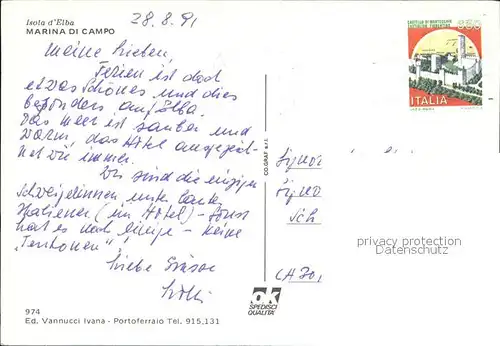 Isola d'Elba
MARINA DI CAMPO
28.8.91
Meine Lieben,
Ferien ist doch
etwas schönes und dies
besonders auf Elba.
Das Meer ist sauber und
warm, das Hotel ausgezeich-
net wie immer.
Wir sind die einzigen
Schweizerinnen unter lauter
Italiener (im Hotel) - Sonst
hat es noch einige - keine
"Teutonen"!
Liebe Grüsse
CASTELLO DI MONTECCHIO
CASTIGLION FIORENTINO
650
ITALIA
CO.GRAF s.r.l.
Signor
Signo
Sch
CH 70
privacy protection
Datenschutz
ok
SPEDISCI
QUALITA'
974
Ed. Vannucci Ivana - Portoferraio Tel. 915,131